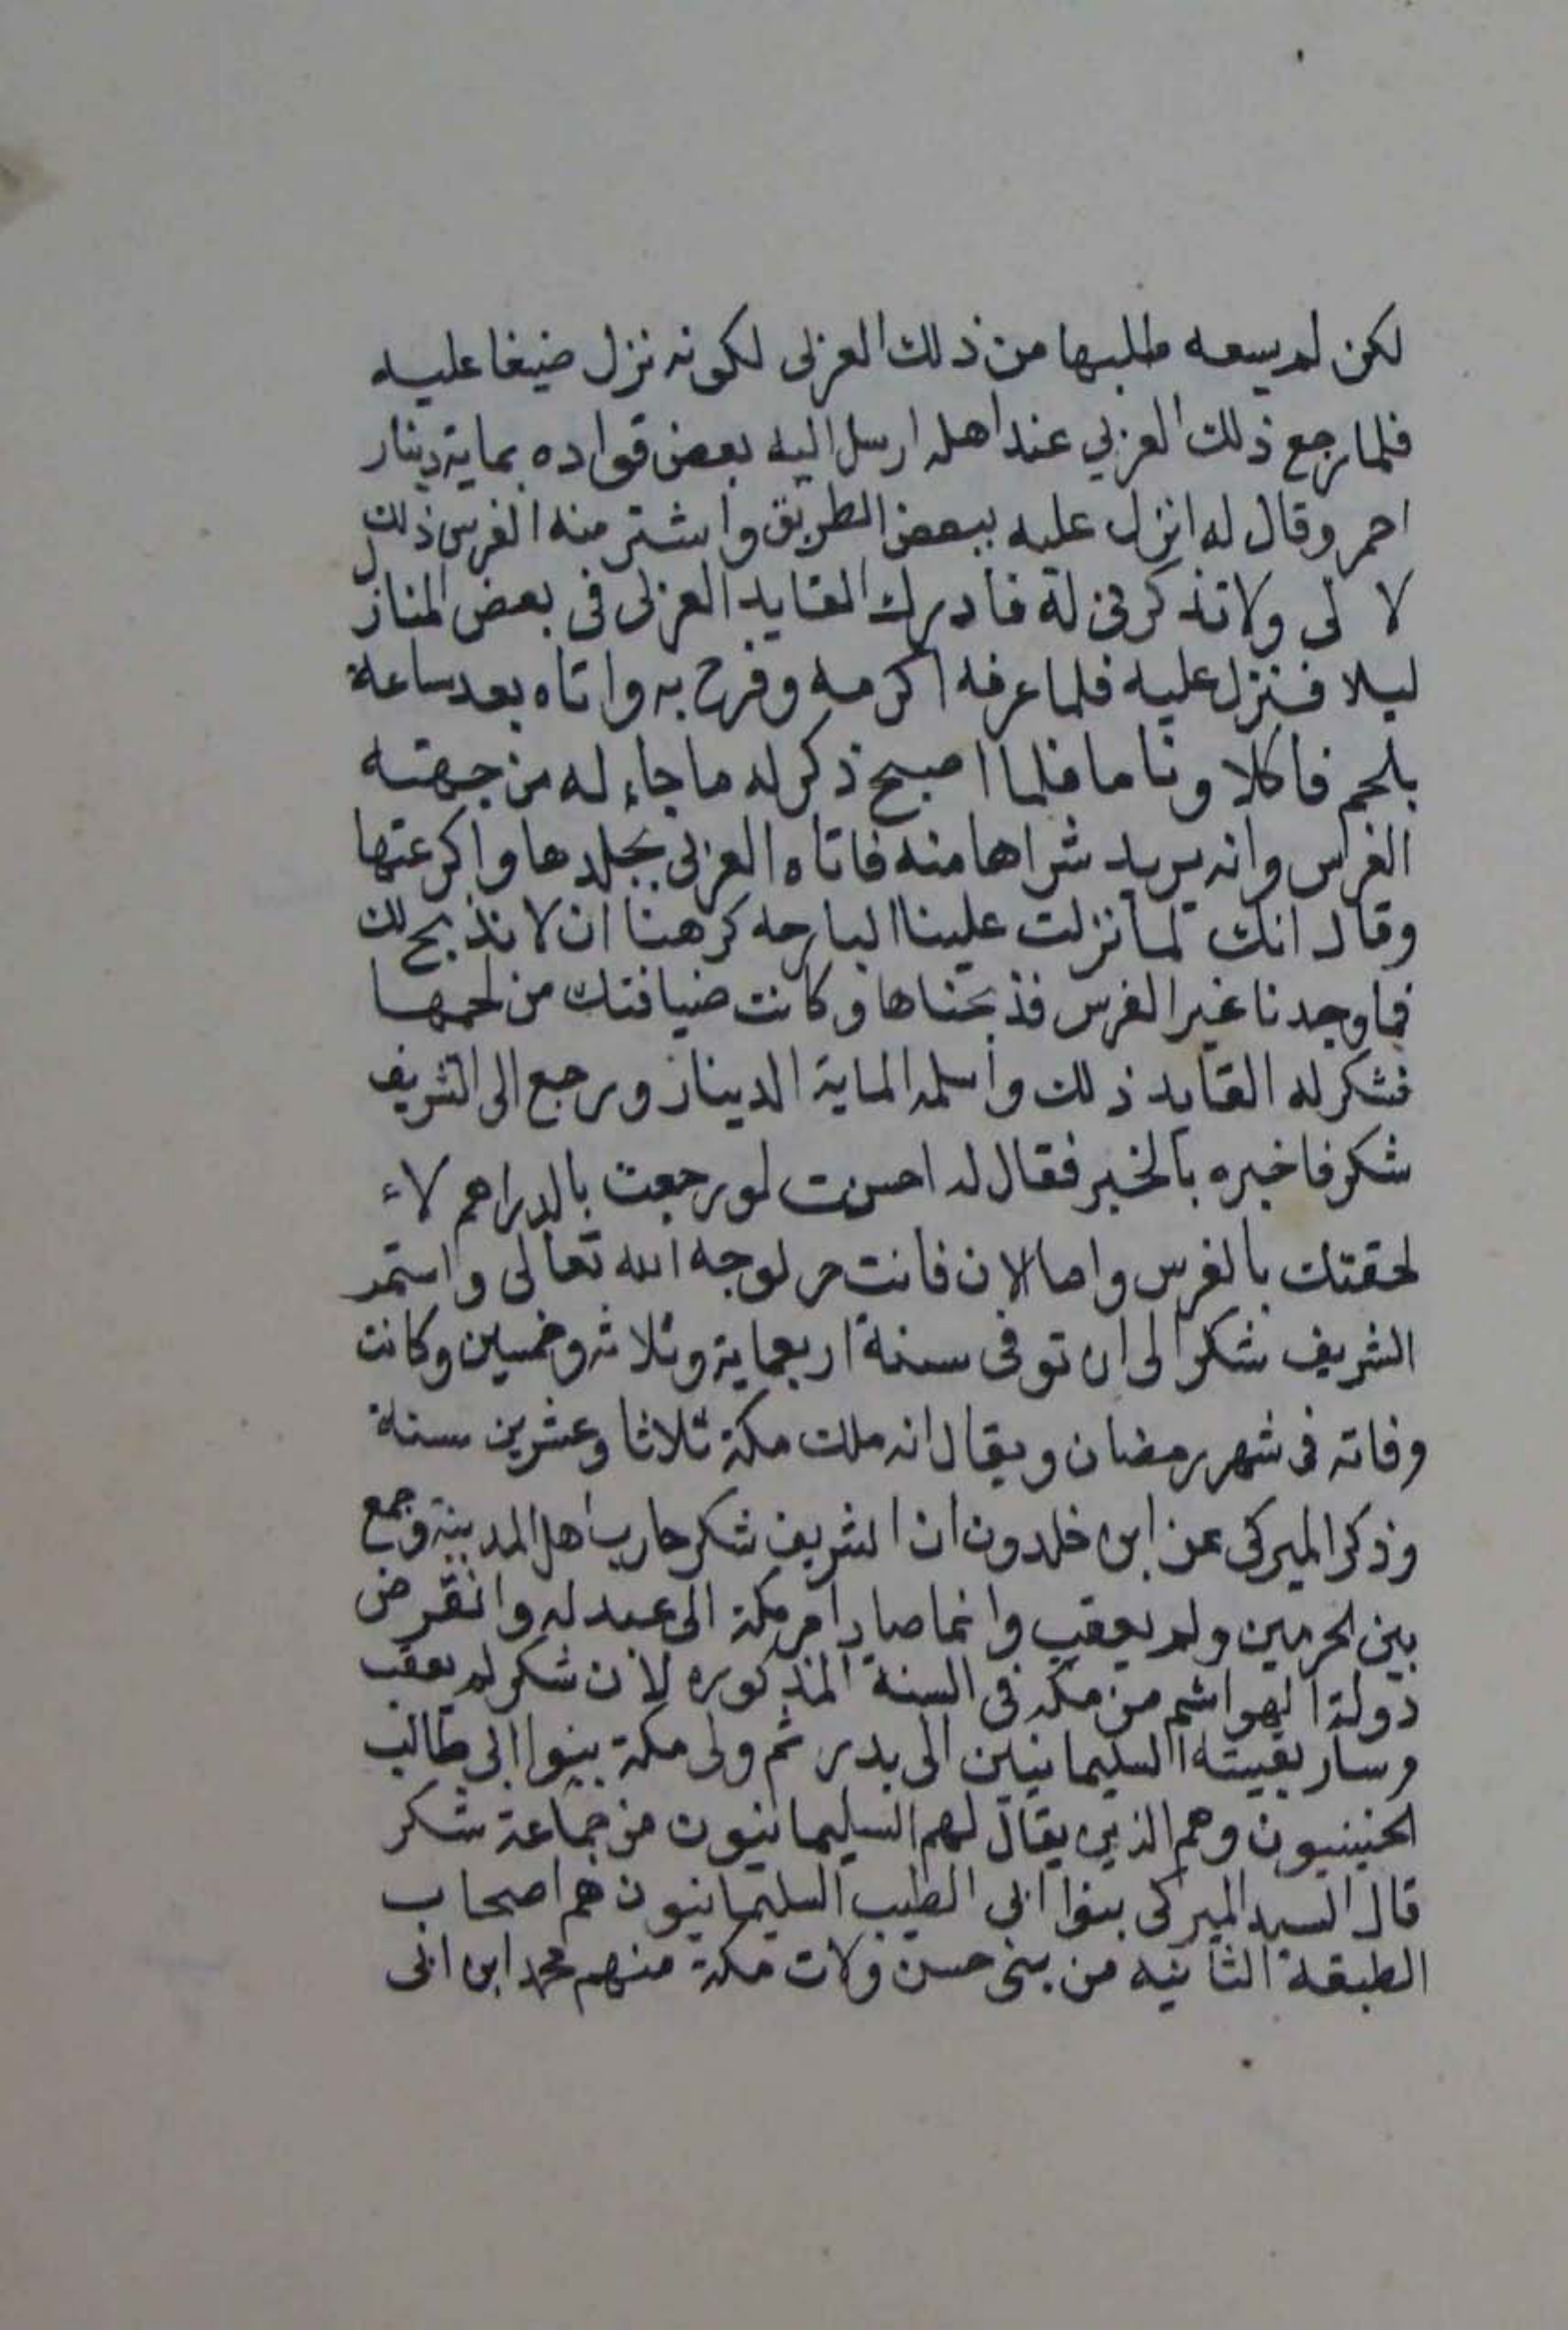 لكن لم يسعه طلبها من ذلك العزبى لكونه نزل ضيفا عليه
فلما رجع ذلك العزبي عند اهله ارسل اليه بعض قواده بماية دينار
احمر وقال له انزل عليه ببعض الطريق واشتر منه الفرس ذلك
لا لى ولا تذكرنى له فادرك القايد العزبى فى بعض المنازل
ليلا فنزل عليه فلما عرفه اكرمه وفرح به واتاه بعد ساعة
بلحم فاكلا وناما فلما اصبح ذكر له ما جاء له من جهته
الفرس وانه يريد شراها منه فاتاه العزبى بجلدها واكرعتها
وقال انك لما نزلت علينا البارحه كرهنا ان لا نذبح لك
فما وجدنا غير الفرس فذبحناها وكانت ضيافتك من لحمها
فشكر له القايد ذلك واسلمه الماية الدينار ورجع الى الشريف
شكر فاخبره بالخبر فقال له احسنت لو رجعت بالدراهم لاء
لحقتك بالفرس واما الان فانت حر لوجه الله تعالى واستمر
الشريف شكر الى ان توفى سنة اربعماية وثلاثه وخمسين وكانت
وفاته فى شهر رمضان ويقال انه ملك مكة ثلاثا وعشرين سنة
وذكر الميركى عن ابن خلدون ان الشريف شكر حارب اهل المدينة وجمع
بين الحرمين ولم يعقب وانما صار امر مكة الى عبد له وانقرض
دولة الهواشم من مكه فى السنة المذكوره لان شكر لم يعقب
وسار بقيته السليمانيين الى بدر ثم ولى مكة بنوا ابى طالب
الحنينيون وهم الذين يقال لهم السليمانيون من جماعة شكر
قال السيد الميركى بنوا ابى الطيب السليمانيون هم اصحاب
الطبقة الثانيه من بنى حسن ولات مكة منهم محمد ابن ابى